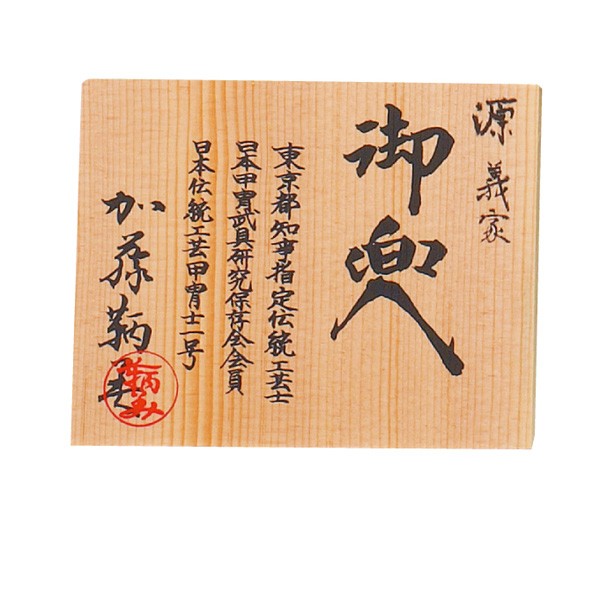 源義家
御兜
東京都知事指定伝統工芸士
日本甲冑武具研究保存会会員
日本伝統工芸甲冑士一号
加藤鞆美